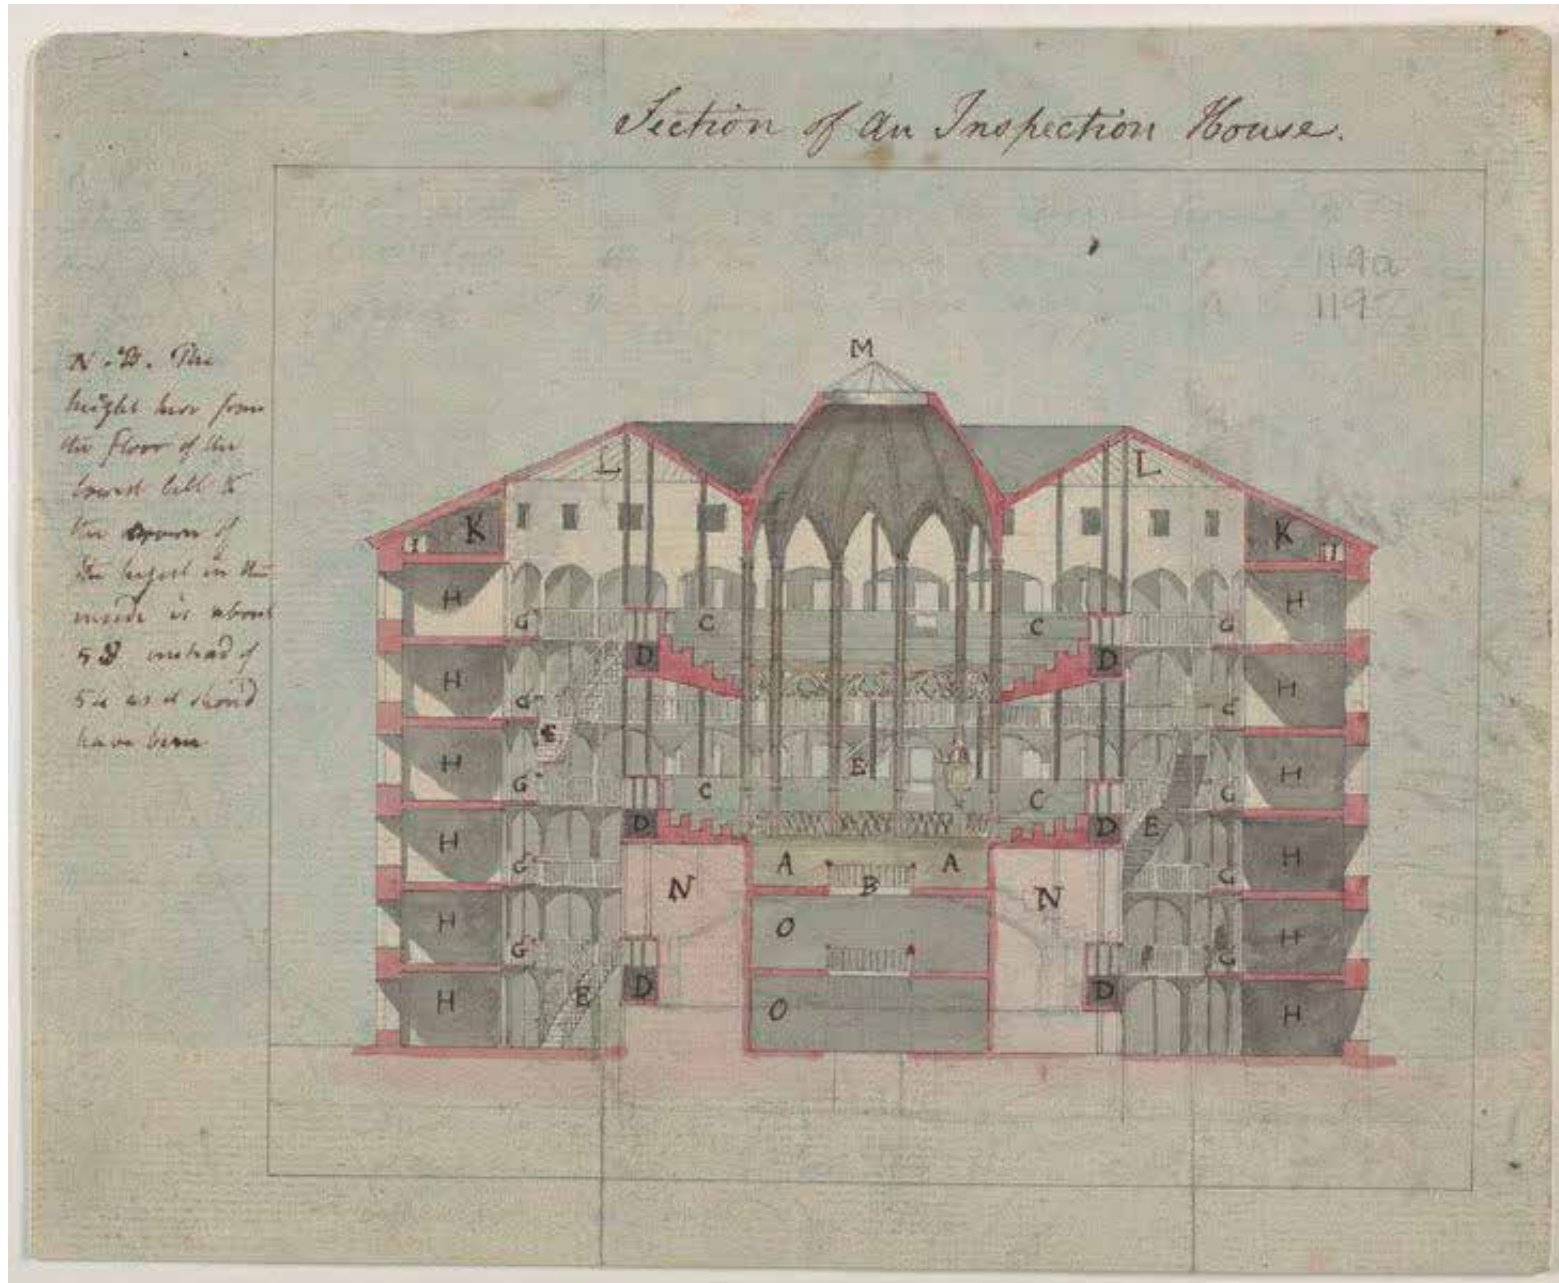 Section of an Inspection House.
119a
119
N.B. The
height here from
the floor of the
lowest Cell to
the crown of
the highest in the
inside is about
instead of
as it should
have been
M
L L
K K
I I
H H
G C C G
D D
H H
G G
E
H E H
G C C G
D D E
H A A H
G B G
N N
H O H
G G
H E D O D H